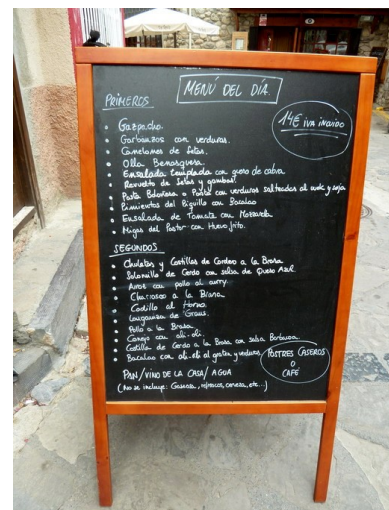 MENÚ DEL DÍA.
14€ iva incluido
PRIMEROS
• Gazpacho.
• Garbanzos con verduras.
• Canelones de Setas.
• Olla Benasquesa.
• Ensalada templada con queso de cabra
• Revuelto de Setas y gambas.
• Pasta Boloñesa o Pasta con verduras salteadas al wok y soja
• Pimientos del Piquillo con Bacalao
• Ensalada de Tomate con Mozzarela
• Migas del Pastor con Huevo frito.
SEGUNDOS
• Chuletas y Costillas de Cordero a la Brasa
• Solomillo de Cerdo con salsa de Queso Azul.
• Arroz con pollo al curry
• Churrasco a la Brasa
• Codillo al Horno
• Longaniza de Graus.
• Pollo a la Brasa
• Conejo con ali-oli.
• Costilla de Cerdo a la Brasa con salsa Barbacoa.
• Bacalao con ali-oli al gratén y verduras
POSTRES CASEROS
CAFÉ
PAN/VINO DE LA CASA/AGUA
(No se incluye: Gaseosa, refrescos, cerveza, etc...)